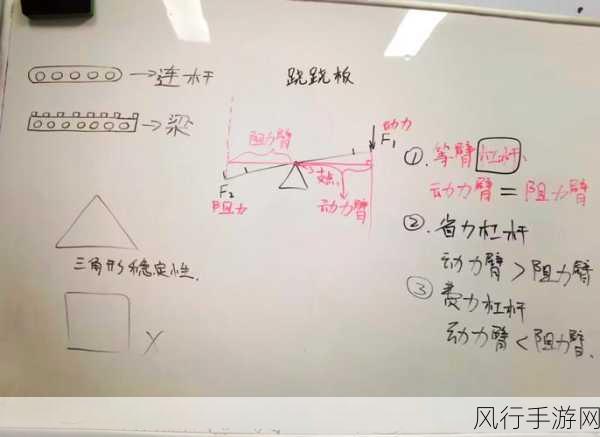 跷跷板
→连杆
→梁
动力
F₁
阻力臂
支点
F₂
阻力
动力臂
①.等臂杠杆.
动力臂=阻力臂
②.省力杠杆
动力臂>阻力臂
③费力杠杆
动力臂<阻力臂.
三角形稳定性.
X
风行手游网